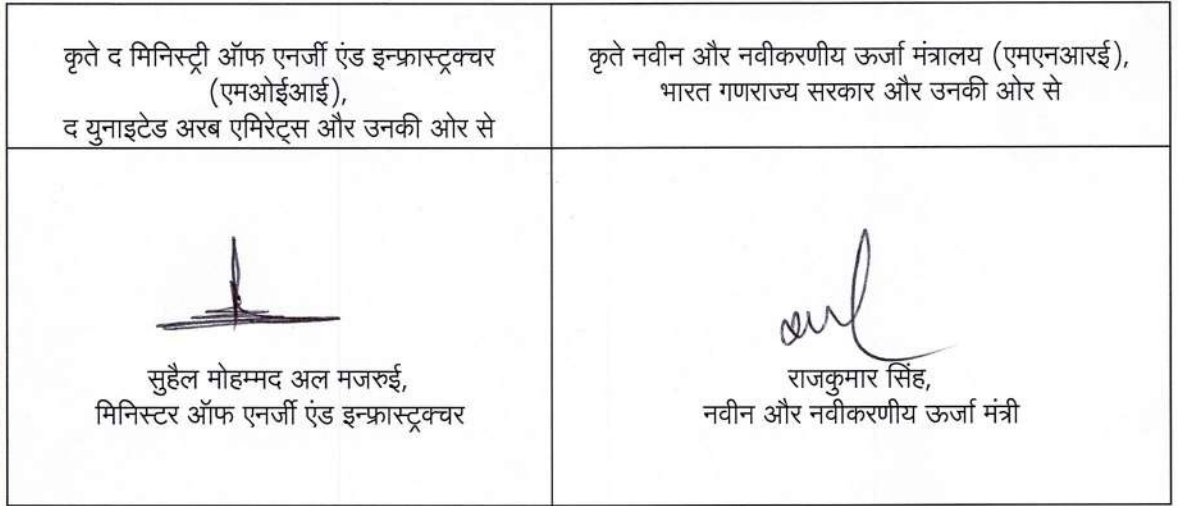 कृते द मिनिस्ट्री ऑफ एनर्जी एंड इन्फ्रास्ट्रक्चर
(एमओईआई),
द युनाइटेड अरब एमिरेट्स और उनकी ओर से
कृते नवीन और नवीकरणीय ऊर्जा मंत्रालय (एमएनआरई),
भारत गणराज्य सरकार और उनकी ओर से
सुहैल मोहम्मद अल मजरुई,
मिनिस्टर ऑफ एनर्जी एंड इन्फ्रास्ट्रक्चर
राजकुमार सिंह,
नवीन और नवीकरणीय ऊर्जा मंत्री